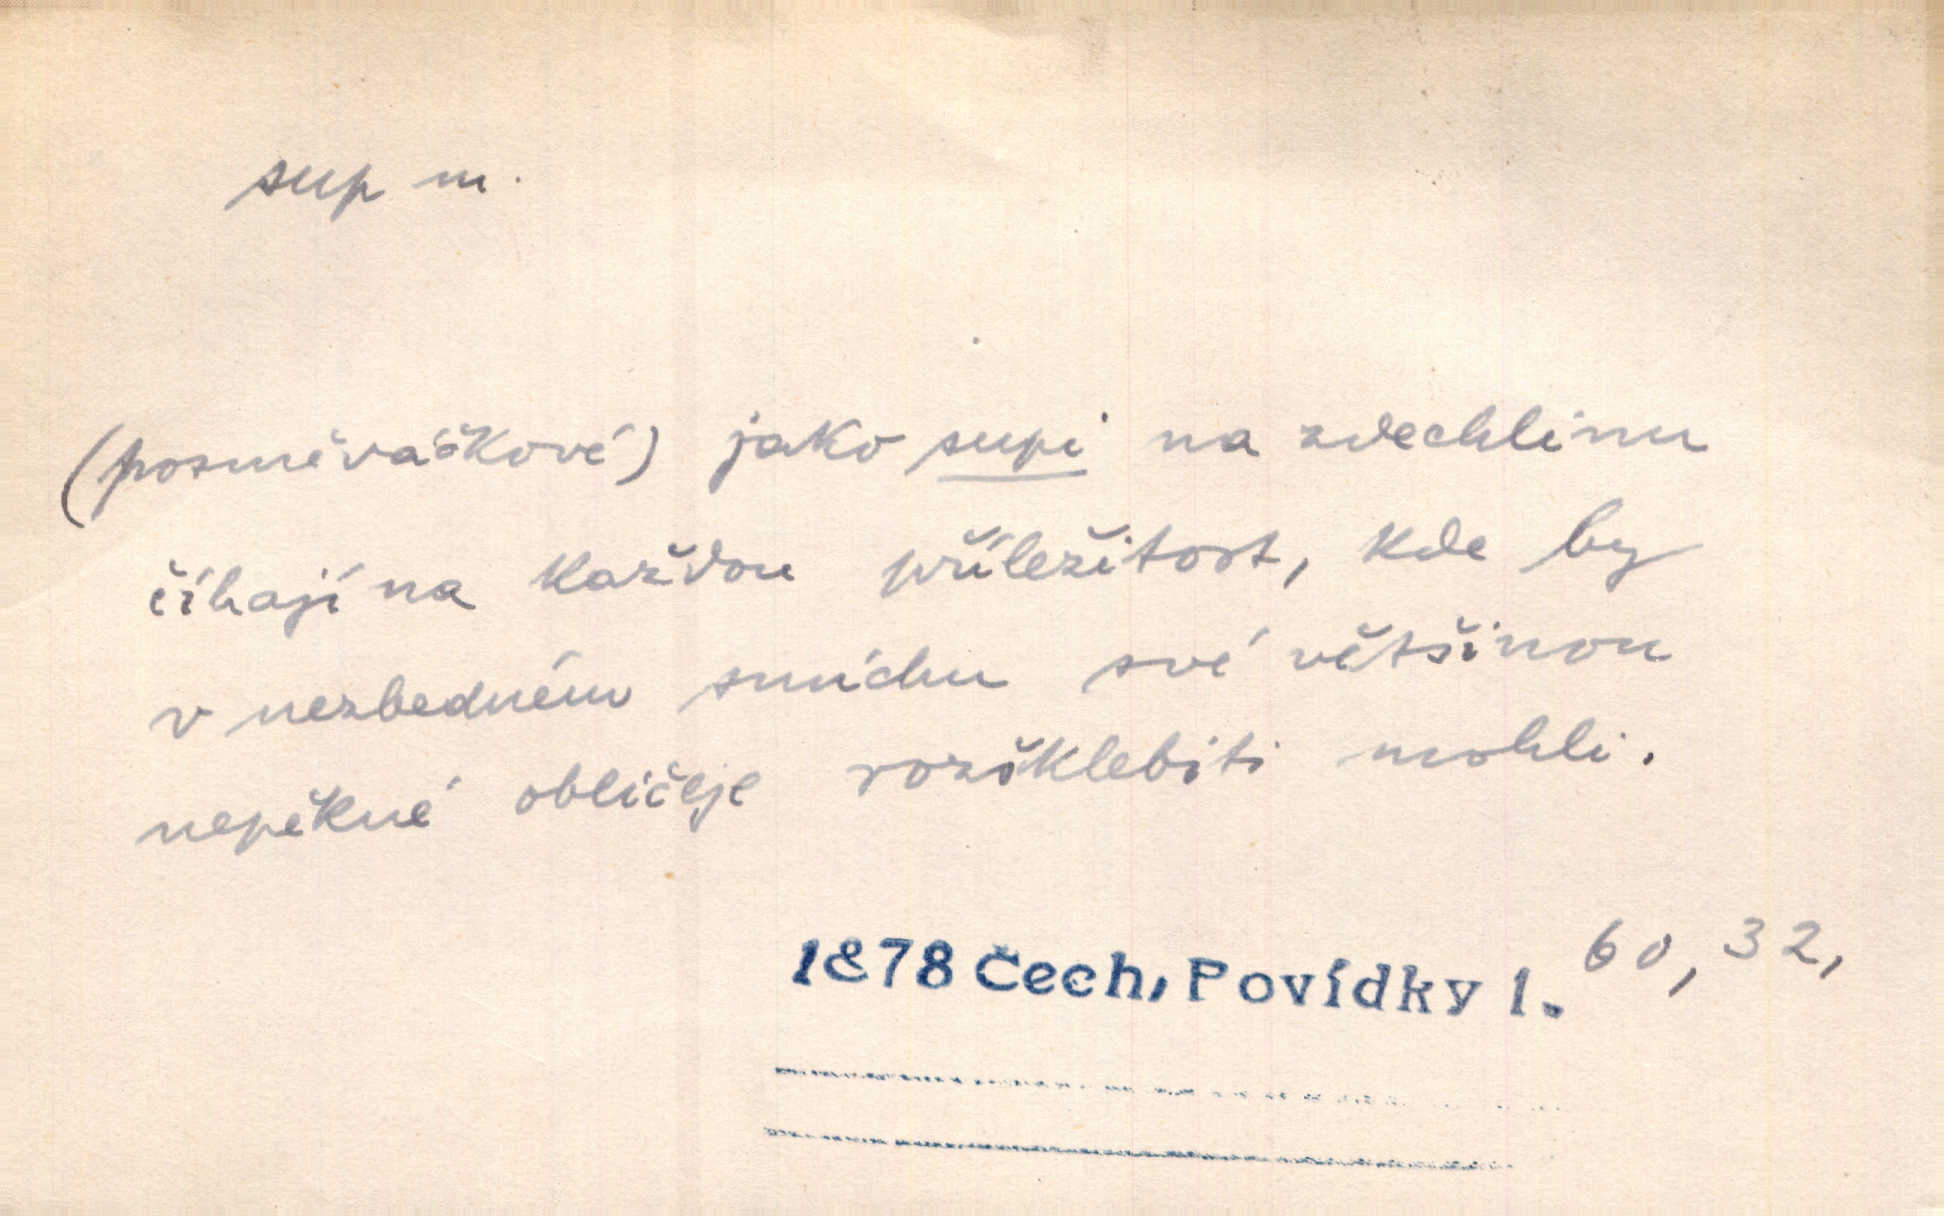 sup m.
(posměváčkové) jako supi na zdechlinu
číhají na každou příležitost, kde by
v nezbedném smíchu své většinou
nepěkné obličeje rozšklebiti mohli.
1878 Čech, Povídky 1. 60, 32,